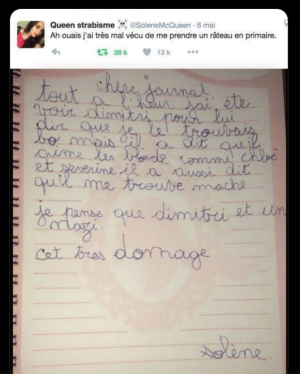 Queen strabisme @SoleneMcQueen · 6 mai
Ah ouais j'ai très mal vécu de me prendre un râteau en primaire.
28 k 13 k
chere journal
tout a l'heur jai éte
voir dimitri pour lui
dir que je le trouvais
bo mais il a dit qu'il
aime les blonde comme chloé
et severine il a aussi dit
qu'il me trouve moche
je pense que dimitri et un
nazi
cet tres domage
solène